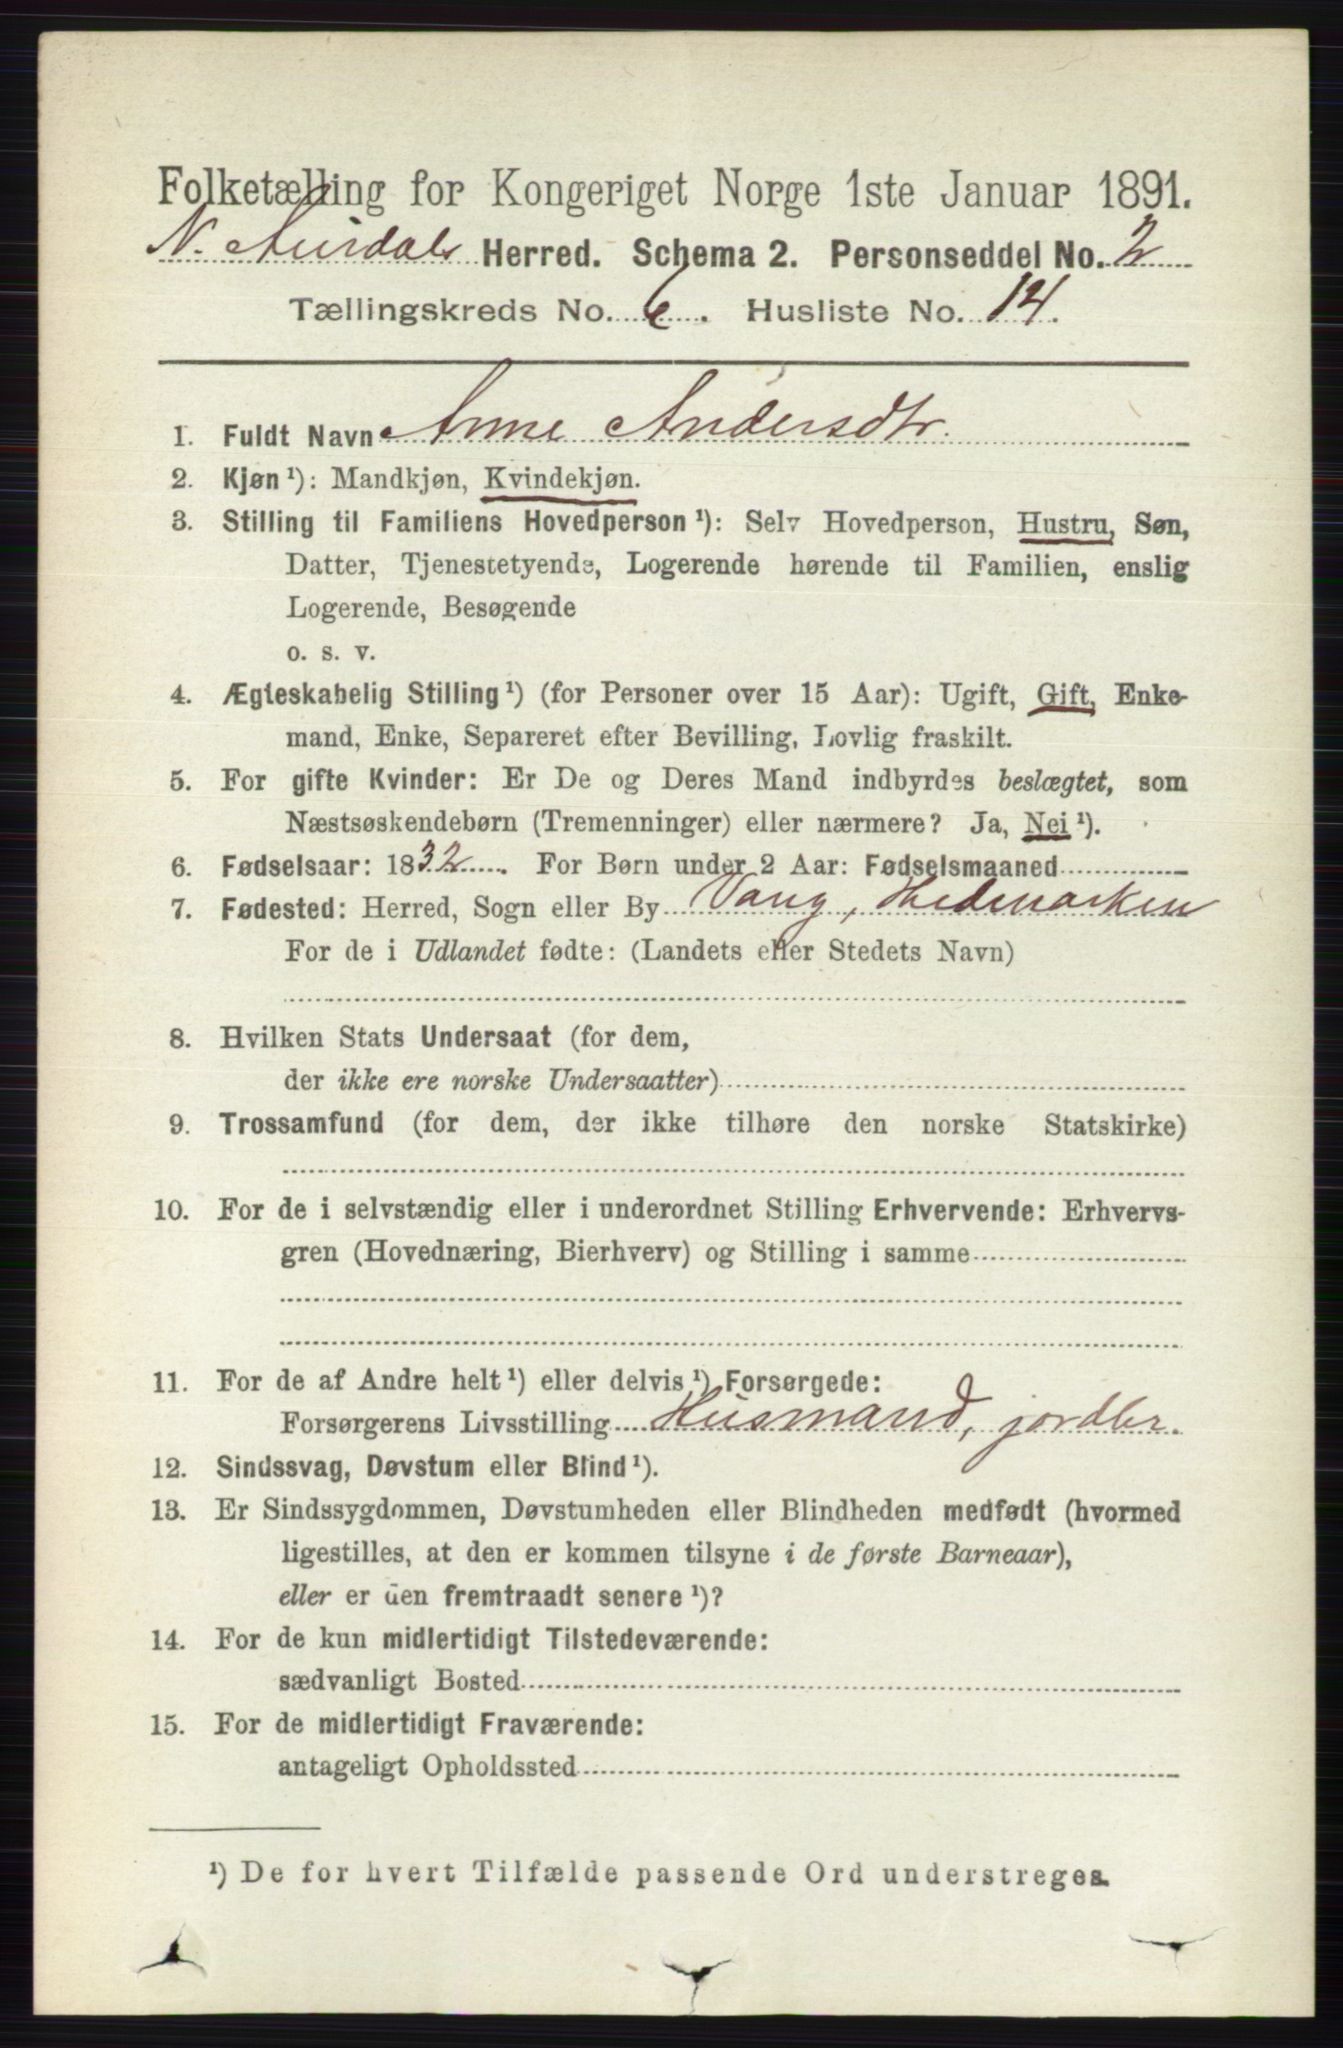 Folketælling for Kongeriget Norge 1ste Januar 1891.
N. Aurdals Herred. Schema 2. Personseddel No. 2
Tællingskreds No. 6. Husliste No. 14.
1. Fuldt Navn Anne Andersdtr.
2. Kjøn¹): Mandkjøn, Kvindekjøn.
3. Stilling til Familiens Hovedperson¹): Selv Hovedperson, Hustru, Søn,
Datter, Tjenestetyende, Logerende hørende til Familien, enslig
Logerende, Besøgende
o. s. v.
4. Ægteskabelig Stilling¹) (for Personer over 15 Aar): Ugift, Gift, Enke-
mand, Enke, Separeret efter Bevilling, Lovlig fraskilt.
5. For gifte Kvinder: Er De og Deres Mand indbyrdes beslægtet, som
Næstsøskendebørn (Tremenninger) eller nærmere? Ja, Nei¹).
6. Fødselsaar: 1832. For Børn under 2 Aar: Fødselsmaaned
7. Fødested: Herred, Sogn eller By Vang, Hedemarken
For de i Udlandet fødte: (Landets eller Stedets Navn)
8. Hvilken Stats Undersaat (for dem,
der ikke ere norske Undersaatter)
9. Trossamfund (for dem, der ikke tilhøre den norske Statskirke)
10. For de i selvstændig eller i underordnet Stilling Erhvervende: Erhvervs-
gren (Hovednæring, Bierhverv) og Stilling i samme
11. For de af Andre helt¹) eller delvis¹) Forsørgede:
Forsørgerens Livsstilling Husmand, jordbr.
12. Sindssvag, Døvstum eller Blind¹).
13. Er Sindssygdommen, Døvstumheden eller Blindheden medfødt (hvormed
ligestilles, at den er kommen tilsyne i de første Barneaar),
eller er den fremtraadt senere¹)?
14. For de kun midlertidigt Tilstedeværende:
sædvanligt Bosted
15. For de midlertidigt Fraværende:
antageligt Opholdssted
¹) De for hvert Tilfælde passende Ord understreges.